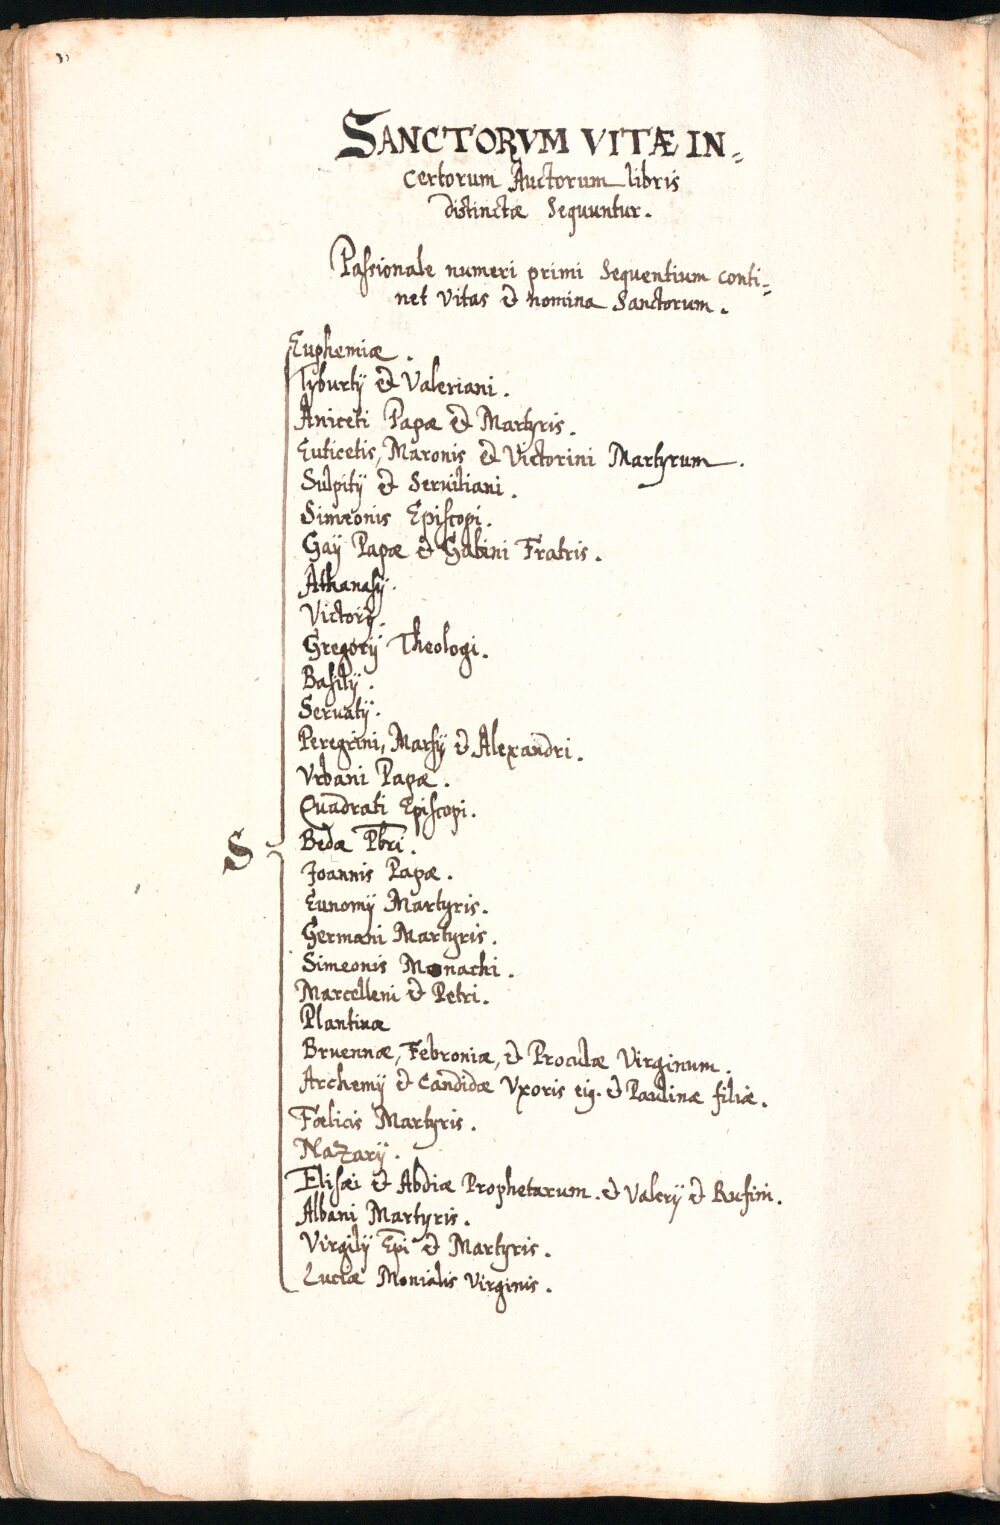 SANCTORVM VITÆ IN=
certorum Auctorum libris
distinctæ sequuntur.
Passionale numeri primi sequentium conti=
net vitas & nomina Sanctorum.
Euphemiæ.
Tyburtÿ & Valeriani.
Aniceti Papæ & Martyris.
Euticetis, Maronis & Victorini Martyrum.
Sulpitÿ & Seruiliani.
Simeonis Episcopi.
Gaÿ Papæ & Gabini Fratris.
Athanasÿ.
Victorÿ.
Gregorÿ Theologi.
Basilÿ.
Seruatÿ.
Peregrini, Marsÿ & Alexandri.
Vrbani Papæ.
Quadrati Episcopi.
S
Bedæ Pbri.
Joannis Papæ.
Eunomÿ Martyris.
Germani Martyris.
Simeonis Monachi.
Marcelleni & Petri.
Plantinæ
Bruennæ, Febroniæ, & Proculæ Virginum.
Archemÿ & Candidæ Vxoris eig. & Paulinæ filiæ.
Fœlicis Martyris.
Nazarÿ.
Elisæi & Abdiæ Prophetarum. & Valerÿ & Rufini.
Albani Martyris.
Virgilÿ Epi & Martyris.
Luciæ Monialis Virginis.